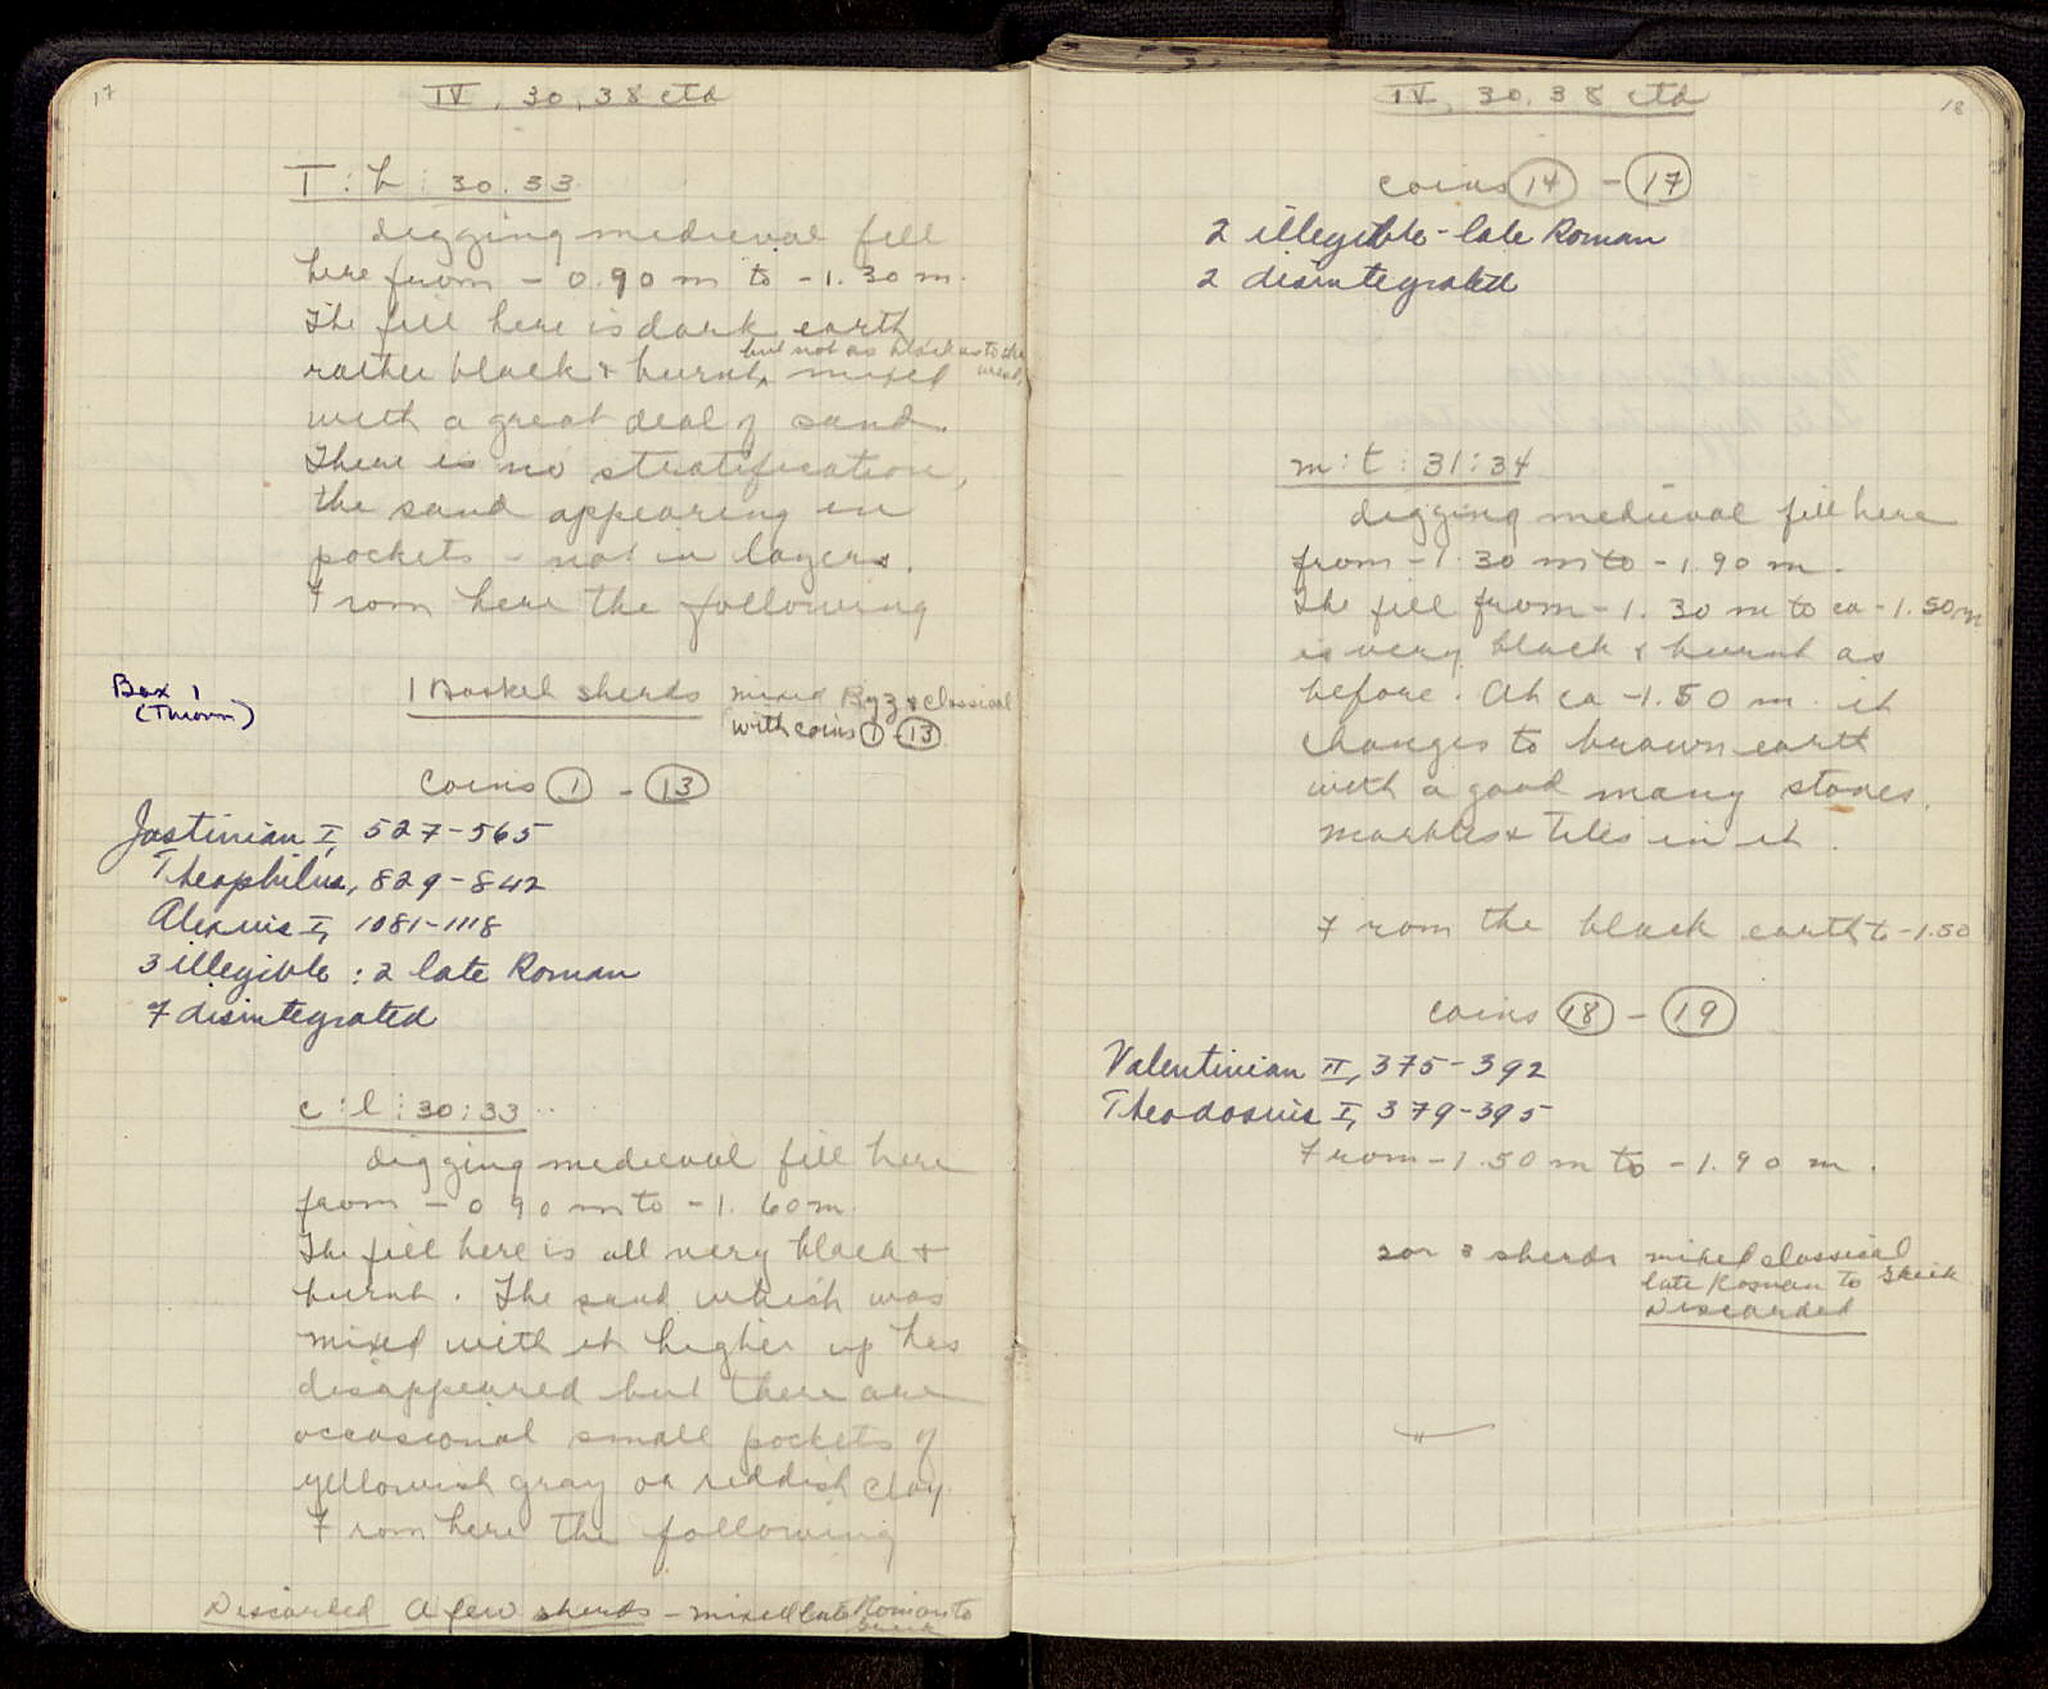 17
IV, 30, 38 ctd
T : h : 30.33
digging medieval fill
here from - 0.90 m to - 1.30 m.
The fill here is dark earth
but not as black as to the west,
rather black & burnt, mixed
with a great deal of sand.
There is no stratification,
the sand appearing in
pockets - not in layers.
From here the following
Box 1
1 Basket sherds mixed Byz & classical
with coins 1 - 13
coins 1 - 13
Justinian I, 527-565
Theophilus, 829-842
Alexius I, 1081-1118
3 illegible : 2 late Roman
7 disintegrated
c : l : 30 : 33
digging medieval fill here
from - 0 90 m to - 1. 60 m.
The fill here is all very black &
burnt. The sand which was
mixed with it higher up has
disappeared but there are
occasional small pockets of
yellowish gray or reddish clay.
From here the following
Discarded A few sherds - mixed late Roman to
Greek
18
IV, 30, 38 ctd
coins 14 - 17
2 illegible - late Roman
2 disintegrated
m : t : 31 : 34
digging medieval fill here
from - 1.30 m to - 1.90 m.
The fill from - 1. 30 m to ca - 1.50 m
is very black & burnt as
before. At ca -1.50 m. it
changes to brown earth
with a good many stones,
marbles & tiles in it.
From the black earth to -1.50
coins 18 - 19
Valentinian II, 375-392
Theodosius I, 379-395
From - 1.50 m to - 1.90 m.
2 or 3 sherds mixed classical
late Roman to Greek
Discarded